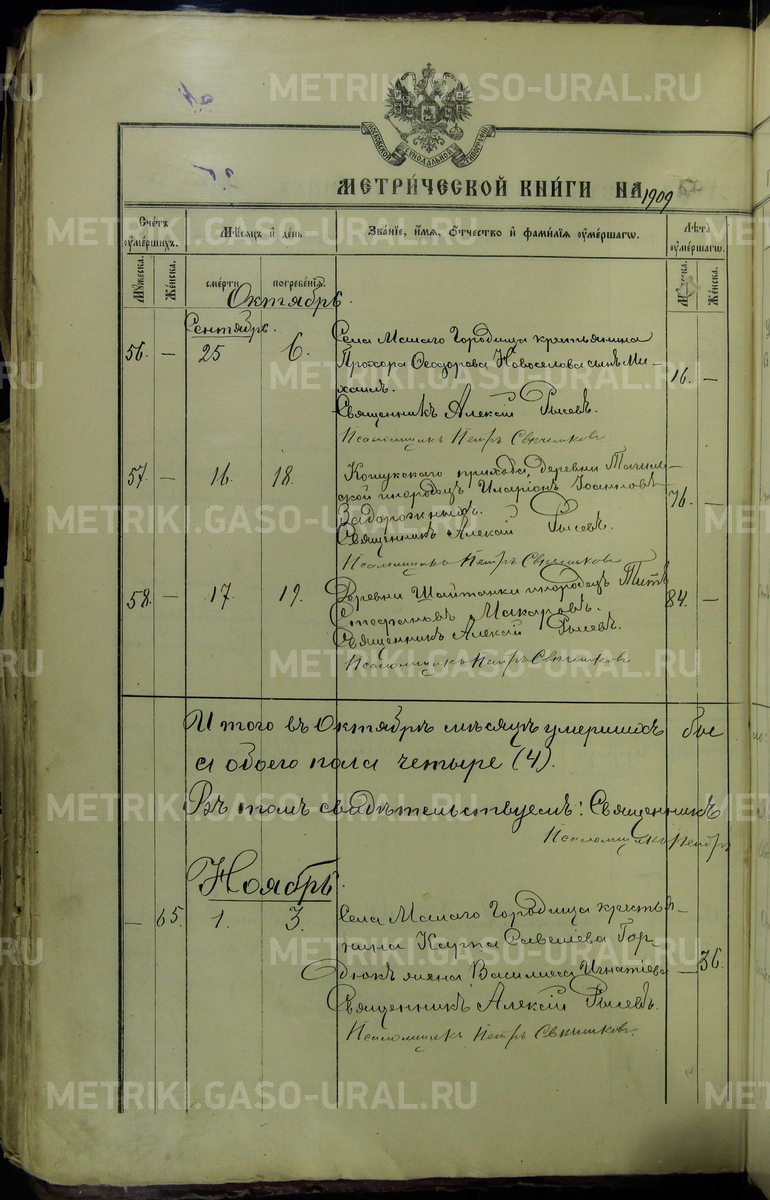 METRIKI.GASO-URAL.RU
МОСКОВСКОЙ СѴНОДАЛЬНОЙ ТИПОГРАФІИ
МЕТРИ́ЧЕСКОЙ КНИ́ГИ НА 1909
Счетъ ᲂумершихъ.
Мѣсяцъ и день
Званіе, имя, отчество и фамилія ᲂумершаго.
Лѣта ᲂумершаго.
Мужеска.
Женска.
смерти
погребенія.
Мужеска.
Женска.
Октябрь.
Сентябрь.
56. — 25 6. Села Малаго Городища крестьянина
Прохора Ѳеодорова Новоселова сынъ Ми-
хаилъ. 16. —
Священникъ Алексій Рысевъ.
Псаломщикъ Петръ
57. — 16. 18. Кошукскаго прихода, деревни
ской инородецъ Иларіонъ Іоанновъ
Задорожныхъ. 76. —
Священникъ Алексій Рысевъ.
Псаломщикъ Петръ
58. — 17. 19. Деревни Шайтанки инородецъ Титъ
Стефановъ Макаровъ. 84. —
Священникъ Алексій Рысевъ.
Псаломщикъ Петръ
Итого въ Октябрѣ мѣсяцѣ умершихъ бы
л обоего пола четыре (4).
Въ томъ свидѣтельствуемъ: Священникъ
Псаломщикъ Петръ
Ноябрь.
— 65. 1. 3. Села Малаго Городища кресть я-
нина Карпа Савеліева Гор-
дюкъ жена Василиса Игнатіева — 36.
Священникъ Алексій Рысевъ.
Псаломщикъ Петръ